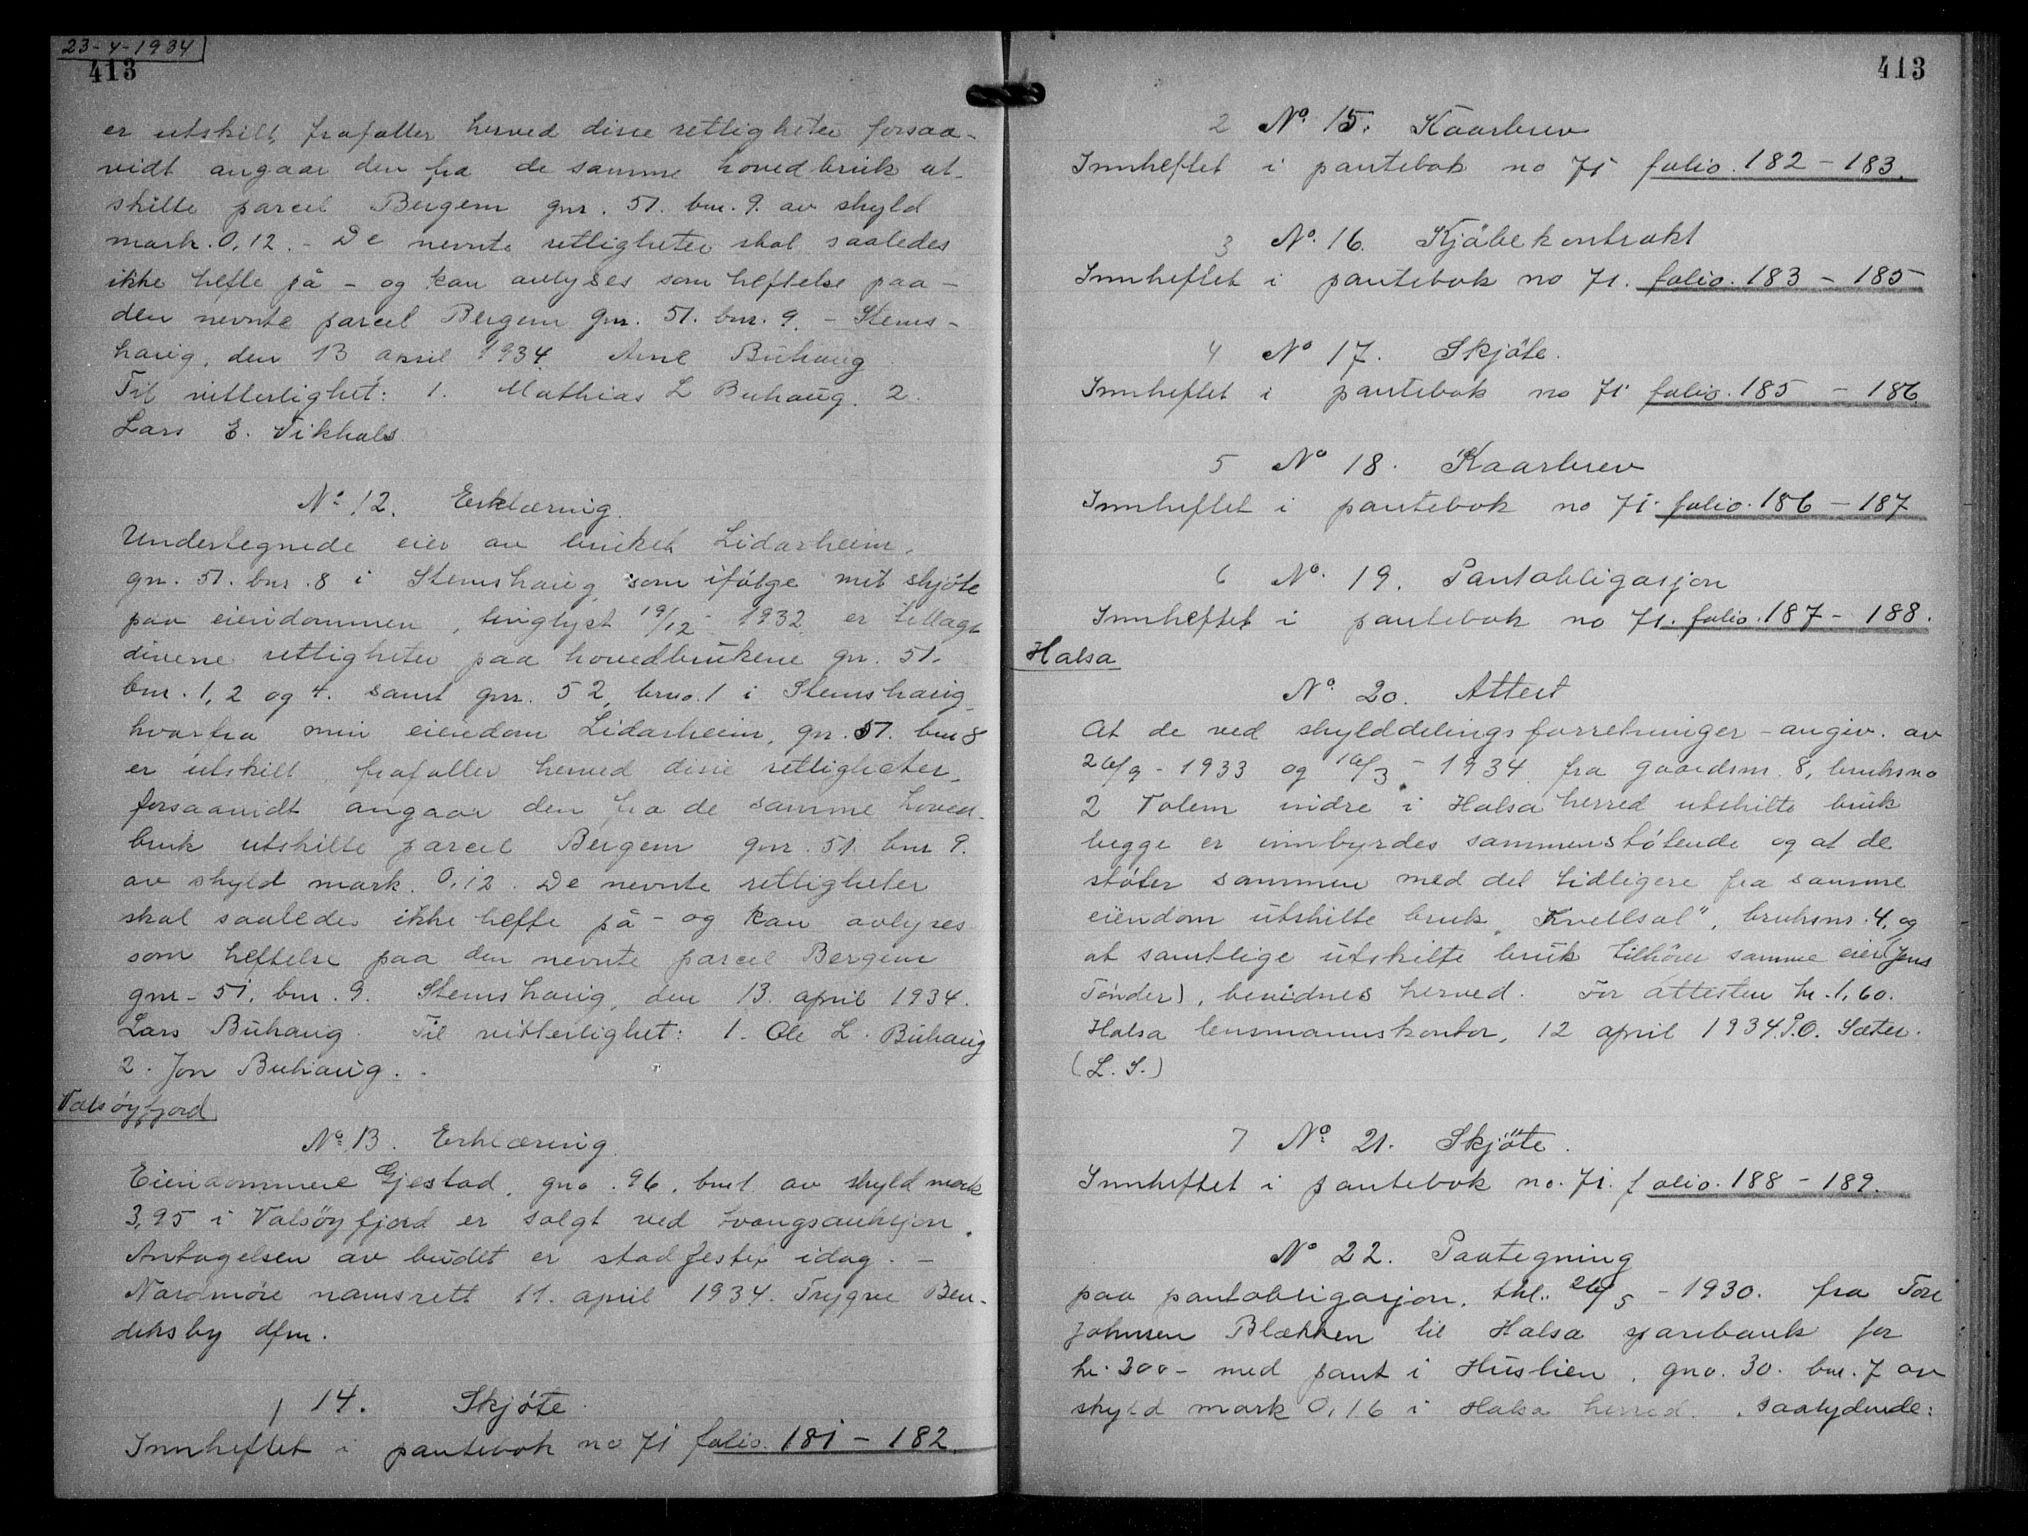 23-4-1934
413
er utskilt, frafaller herved disse rettigheter forsaa-
vidt angaar den fra de samme hovedbruk ut-
skilte parcel Bergem gnr. 51. bnr. 9. av skyld
mark. 0,12. - De nevnte rettigheter skal saaledes
ikke hefte på - og kan avlyses som heftelse paa -
den nevnte parcel Bergem gnr. 51. bnr. 9. - Stems-
haug, den 13 april 1934. Arne Buhaug
Til vitterlighet: 1. Mathias L Buhaug. 2.
Lars E. Vikhals
No 12. Erklæring.
Undertegnede eier av bruket Lidarheim,
gnr. 51. bnr. 8 i Stemshaug, som ifølge mit skjøte
paa eiendommen, tinglyst 19/12 - 1932 er tillagt
diverse rettigheter paa hovedbrukene gnr. 51.
bnr. 1, 2 og 4. samt gnr. 52, brno. 1 i Stemshaug
hvorfra min eiendom Lidarheim, gnr. 51. bnr 8
er utskilt, frafaller herved disse rettigheter,
forsaavidt angaar den fra de samme hoved-
bruk utskilte parcel Bergem gnr. 51 bnr 9.
av skyld mark. 0,12. De nevnte rettigheter
skal saaledes ikke hefte på - og kan avlyses
som heftelse paa den nevnte parcel Bergem
gnr. 51, bnr. 9. Stemshaug, den 13. april 1934.
Lars Buhaug. Til vitterlighet: 1. Ole L. Buhaug
2. Jon Buhaug.
Valsøyfjord
No 13. Erklæring
Eiendommene Gjestad, gno. 96, bnr 1 av skyld mark
3,95 i Valsøyfjord er solgt ved tvangsauksjon.
Antagelsen av budet er stadfestet idag. -
Nordmøre namsrett 11. april 1934. Trygve Ben-
diksby dfm.
1 14. Skjøte
Innheftet i pantebok no 71 folio. 181 - 182.
413
2 No 15. Kaarbrev
Innheftet i pantebok no 71 folio. 182 - 183.
3 No. 16. Kjøbekontrakt
Innheftet i pantebok no 71. folio. 183 - 185
4 No 17. Skjøte.
Innheftet i pantebok no 71 folio. 185 - 186.
5 No 18. Kaarbrev
Innheftet i pantebok no 71. folio. 186 - 187
6 No. 19. Pantobligasjon
Innheftet i pantebok no 71. folio. 187 - 188.
Halsa
No. 20. Attest
At de ved skylddelingsforretninger - angiv. av
26/9 - 1933 og 16/3 - 1934 fra gaardsnr. 8, bruksno
2 Tolem indre i Halsa herred utskilte bruk
begge er innbyrdes sammenstøtende og at de
støter sammen med det tidligere fra samme
eiendom utskilte bruk "Kvellsol", bruksnr. 4, og
at samtlige utskilte bruk tilhører samme eier (Jens
Tønder), bevidnes herved. For attesten kr. 1,60.
Halsa lensmannskontor, 12 april 1934. P.O. Sæter.
(L. S.)
7 No. 21. Skjøte.
Innheftet i pantebok no. 71. folio. 188 - 189.
No 22. Paategning
paa pantobligasjon, thl. 26/5 - 1930. fra Tore
Johnsen Blækken til Halsa sparebank for
kr. 300 - med pant i Huslien, gno. 30. bnr. 7 av
skyld mark 0,16 i Halsa herred. saalydende: